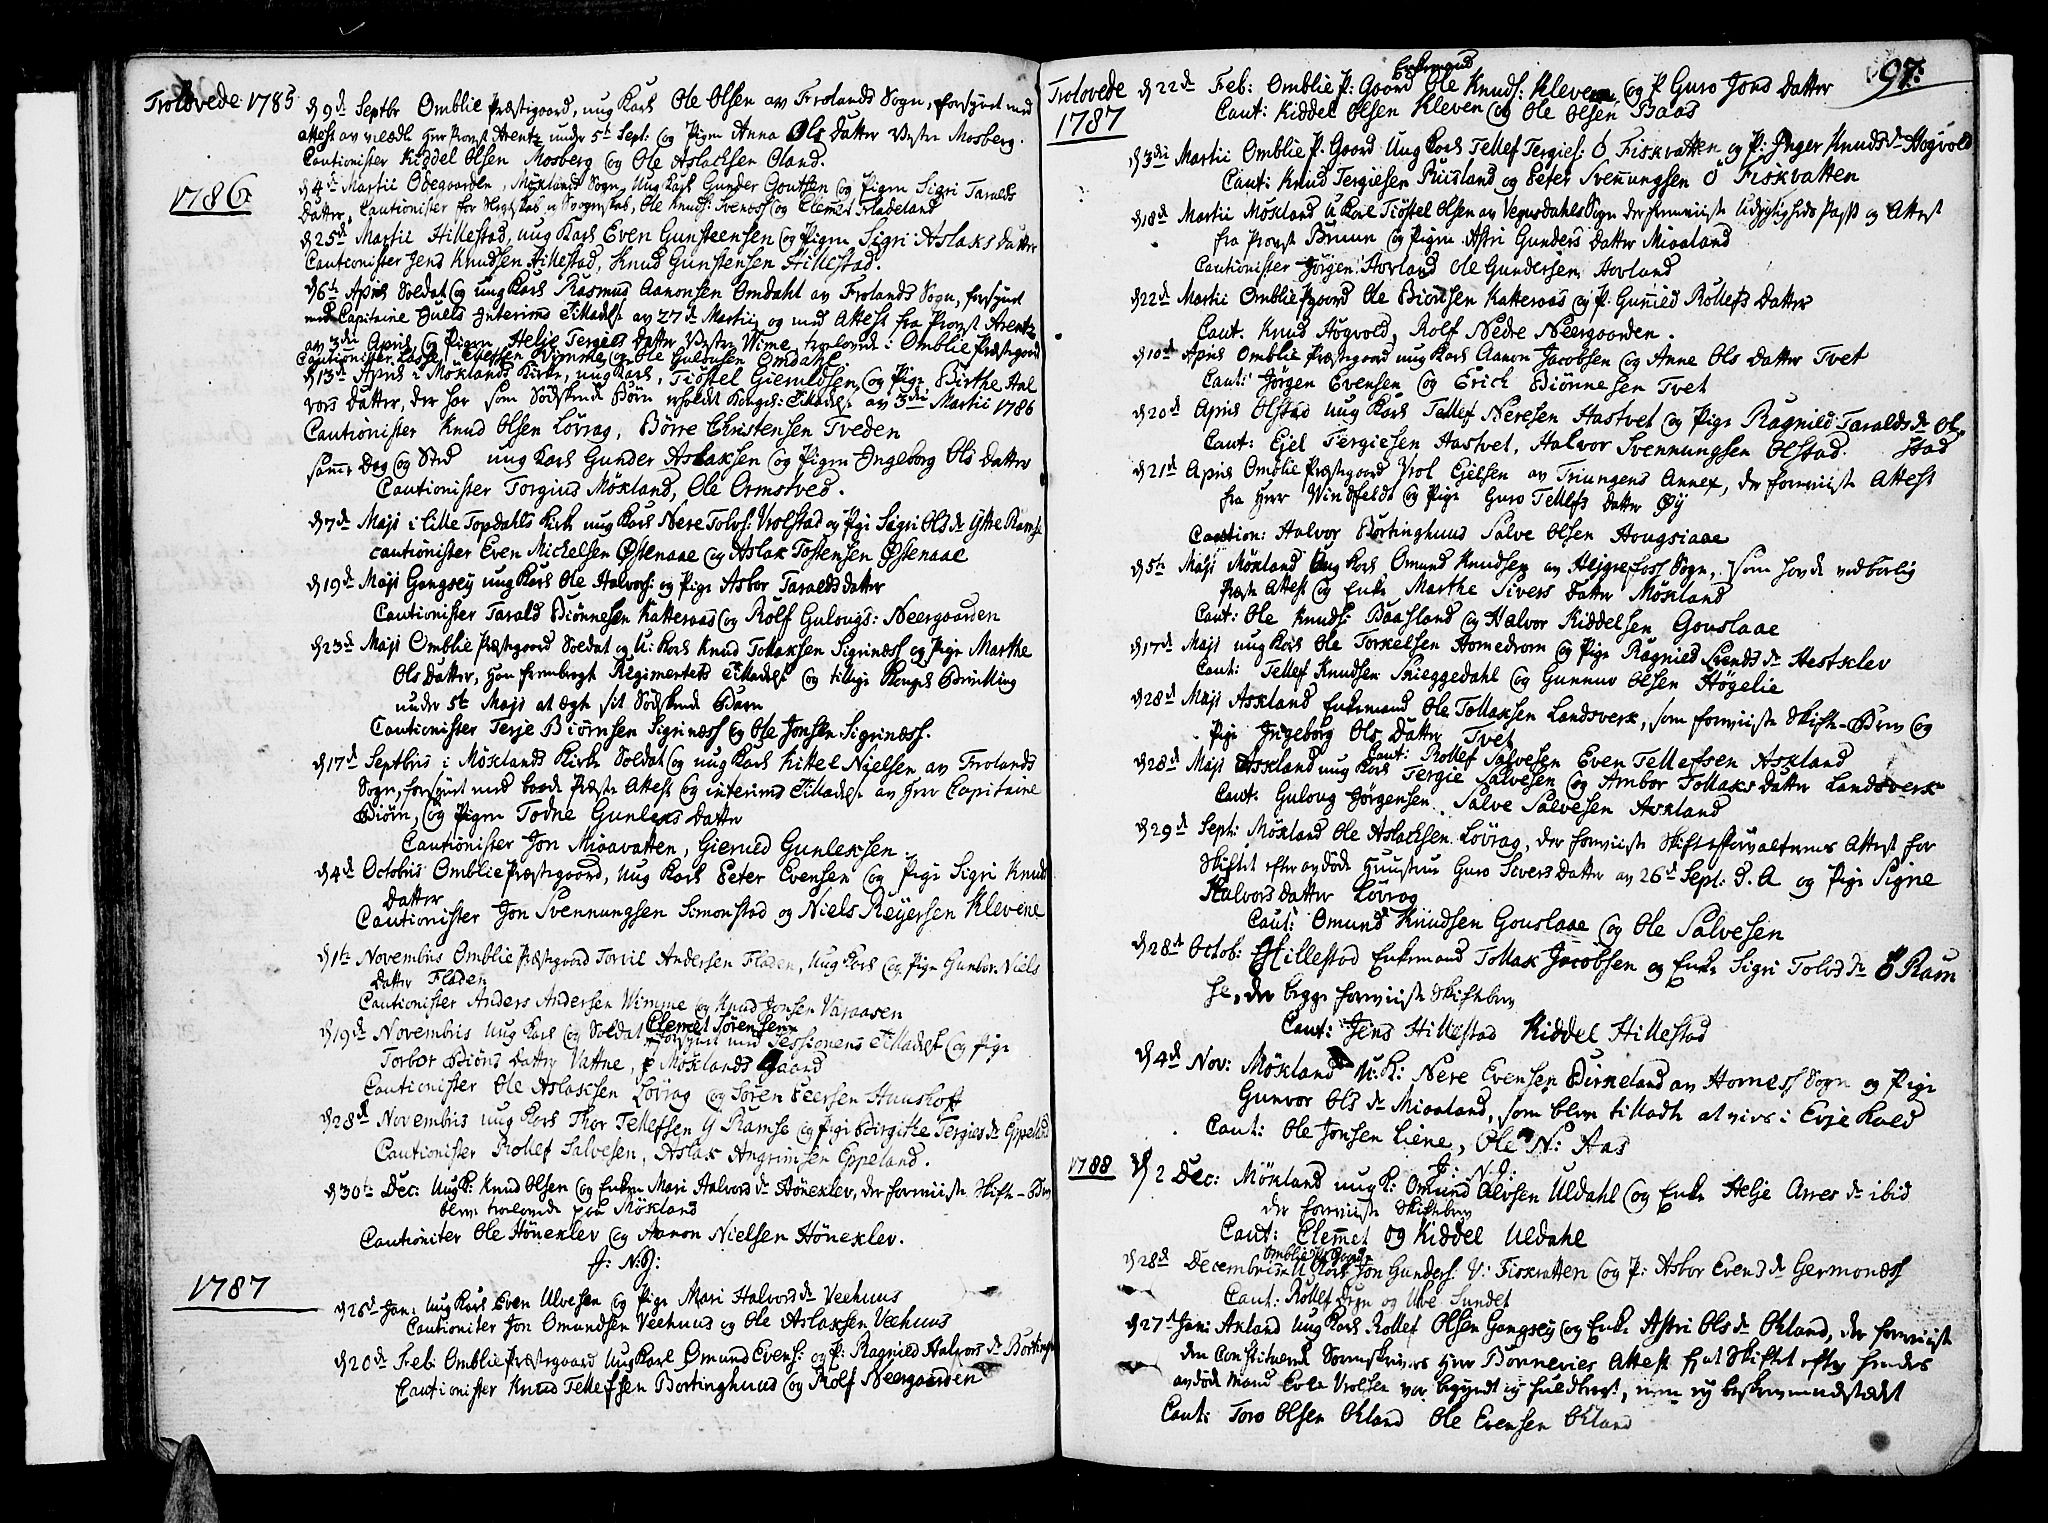 Trolovede 1785
d 9de Septbr Omblie Præstegaard, ung Karl Ole Olsen av Frolands Sogn, forsynet med
attest av velædle Her Provst Arentz under 5te Sept: og Pigen Anna Ols Datter Vestre Mosberg.
Cautionister Kiddel Olsen Mosberg og Ole Aslachsen Oland.
1786
d 4de Martii Ødegaarden, Møklands Sogn Ung Karl Gunder Goutsen og Pigen Sigri Taralds
Datter, Cautionister for Slegtskab og Svogerskab, Ole Knuds: Svenæss og Clemet Fladeland
d 25de Martii Hillestad, ung Karl Even Gunsteensen og Pigen Sigri Aslaks Datter
Cautionister Jens Knudsen Hillestad, Knud Gunstensen Hillestad.
d 6te April Soldat og ung Karl Rasmus Aanonsen Omdahl av Frolands Sogn, forsynet
med Capitaine Juels Interims Tilladelse av 27de Martii og med Attest fra Provst Arentz
av 3die April og Pigen Helje Tergies Datter Vestre Wime, trolovede i Omblie Præstegaard
Cautionister Lasse Ellefsen Vimme og Ole Gulovsen Omdahl
d 13de April i Møklands Kirke, ung Karl, Tiøstel Gierulfsen, og Pige Birthe Hal
vors Datter, der har som Sødskende Børn erholdt Kongel: Tilladelse av 3die Martii 1786
Cautionister Knud Olsen Løvrag, Børre Christensen Tveden
samme Dag og Sted ung Karl Gunder Aslaksen og Pigen Ingeborg Ols Datter
Cautionister Torgius Mökland, Ole Ormstved.
d 7de Maji i Lille Topdahls Kirke ung Karl Nere Tolvs: Vrolstad og Pige Sigri Ols dr Yttre Ramse
cautionister Even Michelsen Østenaae og Aslak Tostensen Østenaae
d 19de Maji Gangsey ung Karl Ole Halvors: og Pige Asbor Taralds datter
Cautionister Tarald Biønnesen Katteraas og Rolf Gulougs: Neergaarden
d 23de Maji Omblie Præstegaard Soldat og U: Karl Knud Tollaksen Sigrinæss og Pige Marthe
Ols Datter, han frembragt Regimentets Tilladelse og tillige Kongel Bevilling
under 5te Maji at ægte sit Sødskende Barn
Cautionister Terje Biørnsen Sigrinæss og Ole Jonsen Sigrinæss.
d 17de Septbris i Møklands Kirke Soldat og ung Karl Kittel Nielsen av Frolands
Sogn, forsynet med baade Præste Attest og interims Tilladelse av Herr Capitaine
Biørn, og Pigen Todne Gunleks Datter
Cautionister Jon Mioavatten, Gierulf Gunleksen.
d 4de Octobris Omblie Præstegaard, ung Karl Peter Evensen og Pige Sigri Knuds
Datter
Cautionister Jon Svennungsen Simonstad og Niels Reyersen Klevene
d 1te Novembris Omblie Præstegaard Torvil Andersen Fladen, ung Karl og Pige Gunbor Niels
Datter Fladen
Cautionister Anders Andersen Wimme og Knud Jonsen Varaasen
d 19de Novembris ung Karl og Soldat Clemet Sørensen
forsynet med Sessionens Tilladelse og Pige
Torbor Biøns Datter Vatne, på Møklands Gaard
Cautionister Ole Aslaksen Løvrag og Søren Peersen Huushoft
d 28de Novembris ung Karl Thor Tellefsen Y Ramse og Pige Birgitte Tergies dr Eppeland
Cautionister Rollef Salvesen, Aslak Angrimsen Eppeland.
d 30te Dec: Ung K: Knud Olsen og Enken Mari Halvors dr Hönexlev, der foreviiste Skifte-Brev
blev trolovede paa Møkland
Cautioniter Ole Hönexlev og Aanon Nielsen Hönexlev.
J: N: J:
1787
d 26de Jan: Ung Karl Even Ulvesen og Pige Mari Halvors dr Veehuus
Cautioniter Jon Omundsen Veehuus og Ole Aslaksen Veehuus
d 20de Feb: Omblie Præstegaard Ung Karl Omund Evens: og P: Ragnild Halvors dr Borting
Cautionister Knud Tellefsen Bortinghuus og Rolf Neergaarden
97.
Trolovede
1787
d 22de Feb: Omblie P: Gaard Enkemand Ole Knuds: Kleven, og P Guro Jons Datter
Caut: Kiddel Olsen Kleven og Ole Olsen Baas
d 3die Martii Omblie P. Gaard Ung Karl Tellef Tergies: Ö Fiskvatten og P: Inger Knuds dr Högvold
Caut: Knud Tergiesen Riisland og Peter Svennungsen Ö Fiskvatten
d 18de Martii Møkland U Karl Tiøstel Olsen av Vegusdahls Sogn der foreviiste Udyglighets Pass og Attest
fra Provst Bruun og Pigen Astri Gunders Datter Mioaland
Cautionister Jørgen Hovland Ole Gundersen Hovland
d 22de Martii Omblie Pgaard Ole Biønsen Katteraas og P. Gunild Rollefs Datter
Caut. Knud Högvold, Rolf Nedre Neergaarden.
d 10de April Omblie Præstegaard ung Karl Aanon Jacobsen og Anne Ols Datter Tvet
Caut: Jørgen Evensen og Erich Biønnesen Tvet
d 20de April Olstad ung Karl Tellef Neresen Hastvet og Pige Ragnild Taralds dr Ol
Caut: Ejel Tergiesen Hastvet, Halvor Svennungsen Olstad. stad
d 21de April Omblie Præstegaard Vrol Ejelsen av Triungens Annex, der foreviiste Attest
fra Herr Windfeldt og Pige Guro Tellefs Datter Øy
Caution: Halvor Bortinghuus Salve Olsen Hougsiaae
d 5te Maji Møkland Ung Karl Omund Knudsen av Hejgrefoss Sogn, som havde vedbørlig
Præste Attest og Enke Marthe Sivers Datter Møkland
Caut: Ole Knuds: Baasland og Halvor Kiddelsen Gouslaae
d 17de Maji ung Karl Ole Torkelsen Homedrom og Pige Ragnild Svends dr Hestklev
Caut: Tellef Knudsen Skieggedahl og Gunnuv Olsen Høgelie
d 28de Maji Askland Enkemand Ole Tollaksen Landsverk, som foreviiste Skifte-Brev og
Pige Ingeborg Ols Datter Tvet
Caut: Rollef Salvesen Even Tellefsen Askland
d 28de Maji Askland ung Karl Tergie Salvesen og Ambor Tollaks Datter Landsverk
Caut: Guloug Jørgensen Salve Salvesen Askland
d 29de Sept: Møkland Ole Aslachsen Løvrag, der foreviiste Skifteforvalterens Attest for
Skiftet efter avdøde Huustrue Guro Sivers Datter av 26de Sept: d. A og Pige Signe
Halvors Datter Løvrag
Caut: Omund Knudsen Gouslaae og Ole Salvesen
d 28de Octob: Hillestad Enkemand Tollak Jacobsen og Enke Sigri Tolvs dr Ö Ram
se, der begge foreviiste Skiftebrev
Caut: Jens Hillestad Kiddel Hillestad
d 4de Nov: Møkland U: K: Nere Evensen Birkeland av Hornes Sogn og Pige
Gunvor Ols dr Mioaland, som blev tilladt at vies i Evje Kald
Caut: Ole Jonsen Liene, Ole N: Aas
J: N: J:
1788
d 2 Dec: Møkland ung K: Omund Olvsen Uldahl og Enke Helje Arres dr ibid
der foreviiste Skiftebrev
Caut: Clemet og Kiddel Uldahl
d 28de Decembris Omblie P. Gaard U Karl Jon Gunders: V: Fiskvatten og P: Asbor Evens dr Germonæss
Caut: Rollef Dyn og Uve Sundet
d 27de Jan: Axland Ung Karl Rollef Olsen Gangsey og Enke Astri Ols dr Okland, der foreviiste
den Constituerede Sorenskrivers Herr Bonnevies Attest at Skiftet efter hendes
avdøde Mand Evle Vrolsen var begyndt og fuldbragt, men ey beskreven udstædet
Caut: Toro Olsen Okland Ole Evensen Okland